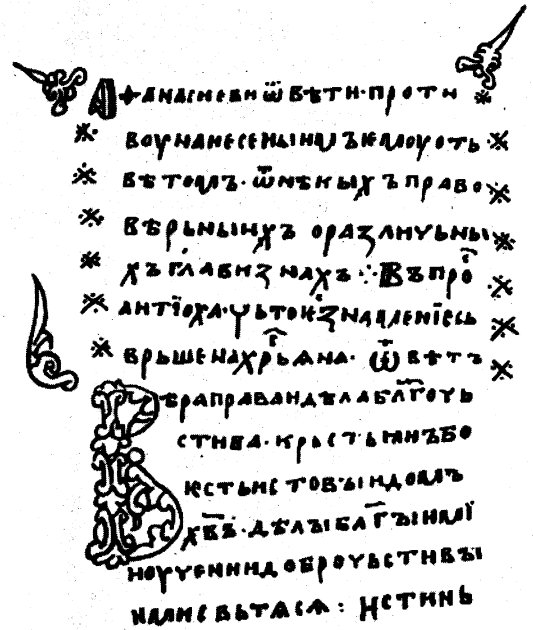 Афанасиеви ѿвѣти·проти
воу нанесенꙑимъ ѥмоу отъ
вѣтомъ·ѿ нѣкꙑхъ право
вѣрьнꙑихъ о различьнꙑ
хъ главизнахъ ⁘ Въпроⷭ
антїоха·чьто ѥⷭ знаменїѥ съ
врьшена хрьⷭꙗна· ѿвѣтъ
Вѣра права и дѣла бл҃гочь
стива·крьстьꙗнъ бо
ѥсть истовꙑи домъ
хв҃ъ·дѣлꙑ бл҃гꙑимї
ноучении доброчьстивꙑ
ими съвьтасѧ: Истинь